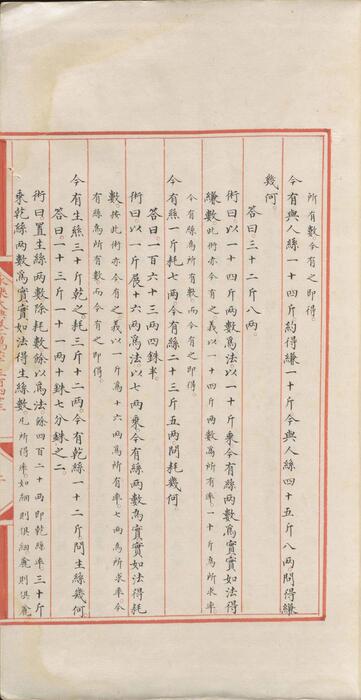 所有數今有之即得。
今有與人絲一十四斤約得縑一十斤今與人絲四十五斤八兩問得縑
幾何。
答曰三十二斤八兩。
術曰以一十四斤兩數為法以一十斤乘今有絲兩數為實實如法得
縑數此術亦今有之義以一十四斤兩數為所有率一十斤為所求率
今有絲為所有數而今有之即得。
今有絲一斤耗七兩今有絲二十三斤五兩問耗幾何。
答曰一百六十三兩四銖半。
術曰以一斤展十六兩為法以七兩乘今有絲兩數為實實如法得耗
數按此術亦今有之義以一斤為十六兩為所有率七兩為所求率今
有絲為所有數而今有之即得。
今有生絲三十斤乾之耗三斤十二兩。今有乾絲一十二斤問生絲幾何。
答曰一十三斤一十一兩十銖七分銖之二。
術曰置生絲兩數除耗數餘以為法餘四百二十兩即乾絲率三十斤
乘乾絲兩數為實實如法得生絲數凡所得率如細則俱細麤則俱麤